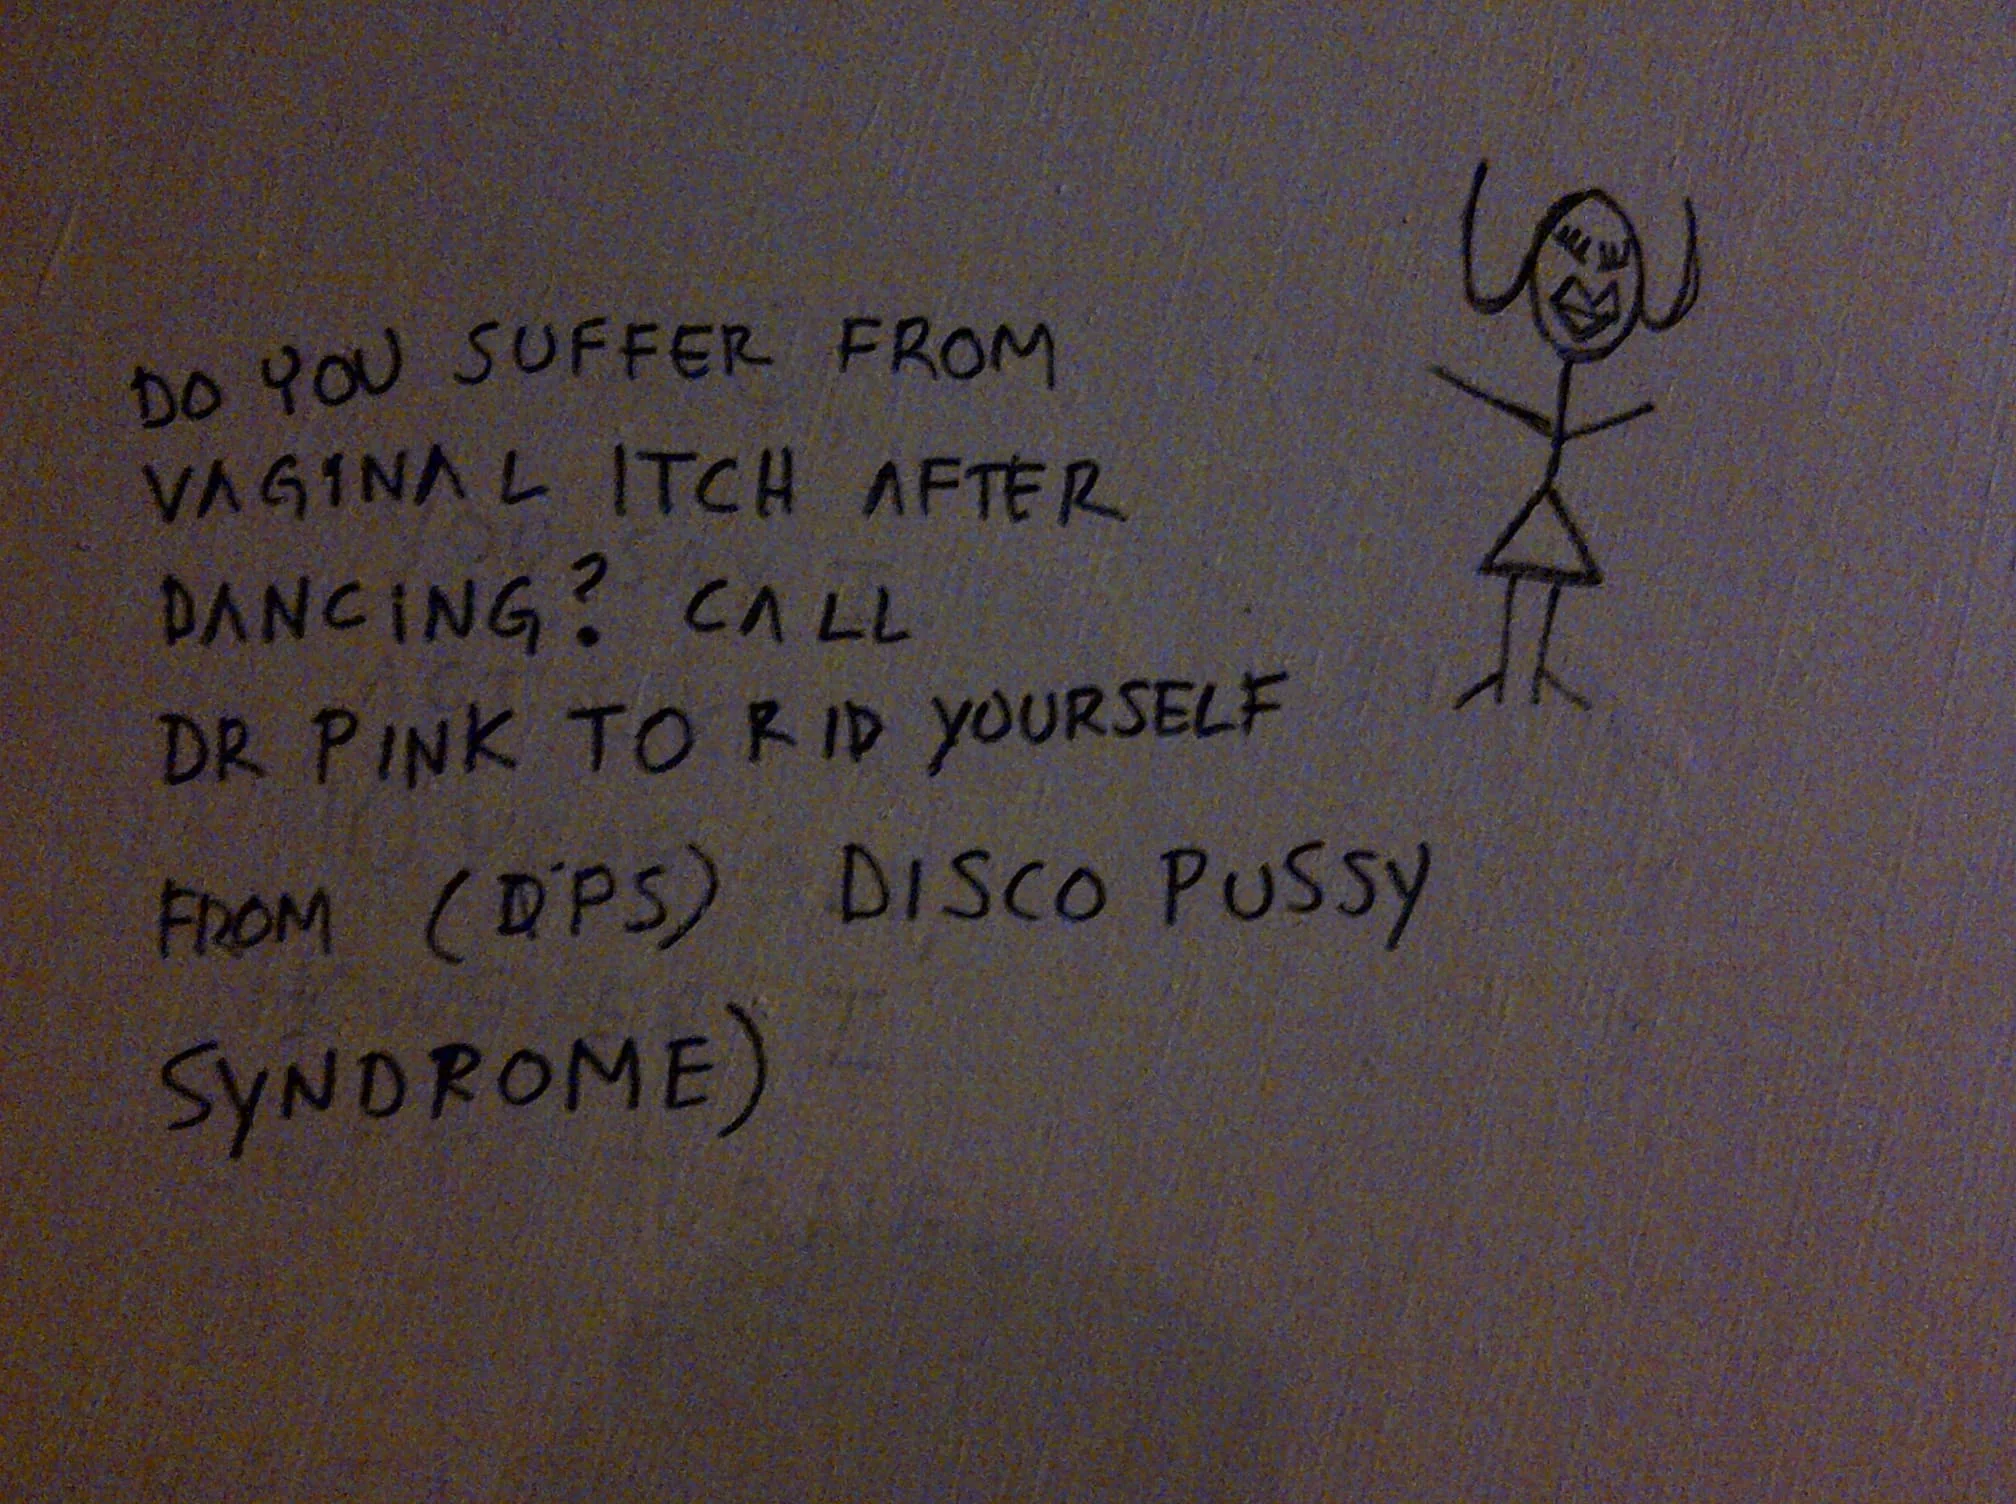 DO YOU SUFFER FROM
VAGINAL ITCH AFTER
DANCING? CALL
DR PINK TO RID YOURSELF
FROM (DPS) DISCO PUSSY
SYNDROME)